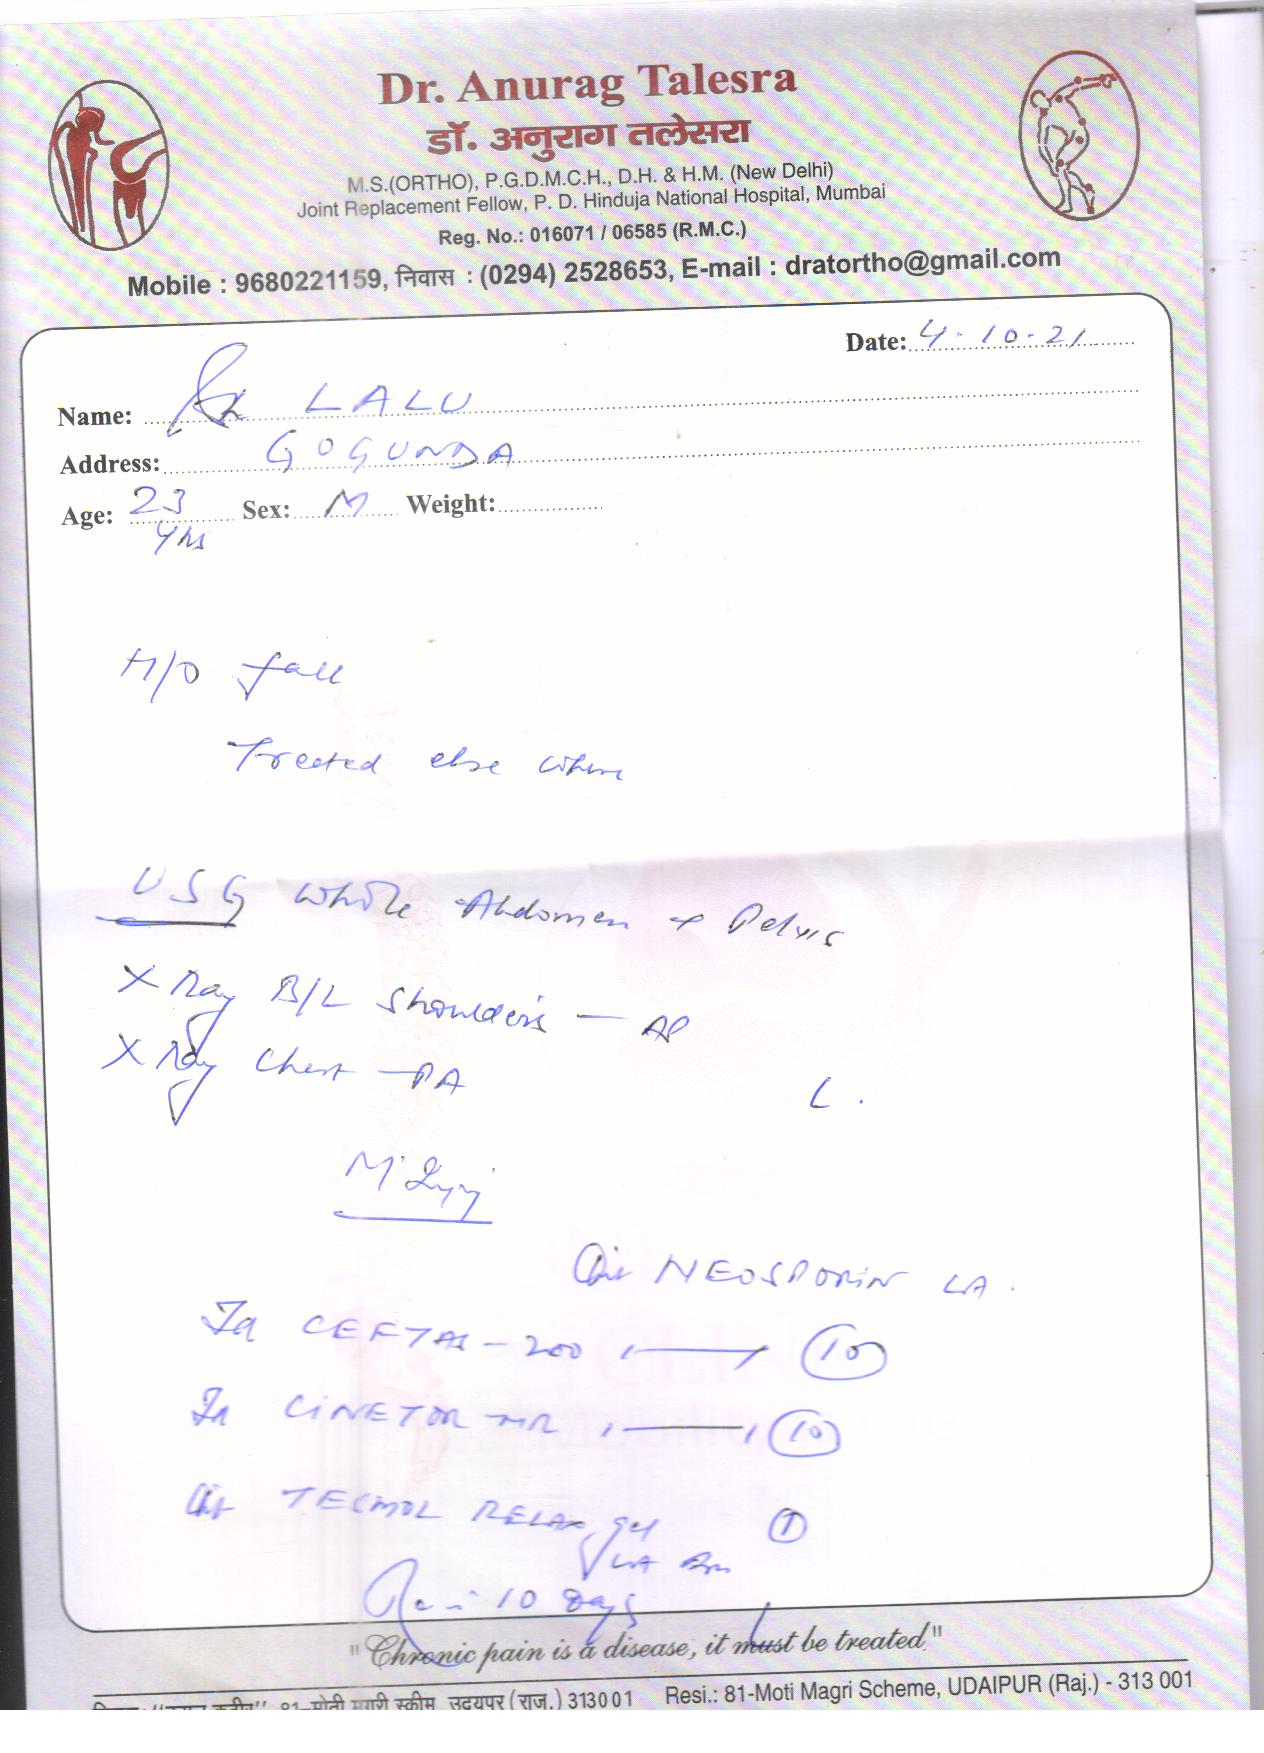 Dr. Anurag Talesra
डॉ. अनुराग तलेसरा
M.S.(ORTHO), P.G.D.M.C.H., D.H. & H.M. (New Delhi)
Joint Replacement Fellow, P. D. Hinduja National Hospital, Mumbai
Reg. No.: 016071 / 06585 (R.M.C.)
Mobile : 9680221159, निवास : (0294) 2528653, E-mail : dratortho@gmail.com
Date: 4-10-21
Name: LALU
Address: GOGUNDA
Age: 23 yrs Sex: M Weight:
H/O fall
Treated else where
USG Whole Abdomen + Pelvis
X Ray B/L Shoulders - AP
X Ray Chest - PA
L.
NEOSPORIN LA.
CEFTAS - 200 10
CINETOR MR 10
TECMOL RELAX gel 1
LA
10 Days
"Chronic pain is a disease, it must be treated"
81-मोती मगरी स्कीम, उदयपुर (राज.) 313001 Resi.: 81-Moti Magri Scheme, UDAIPUR (Raj.) - 313 001